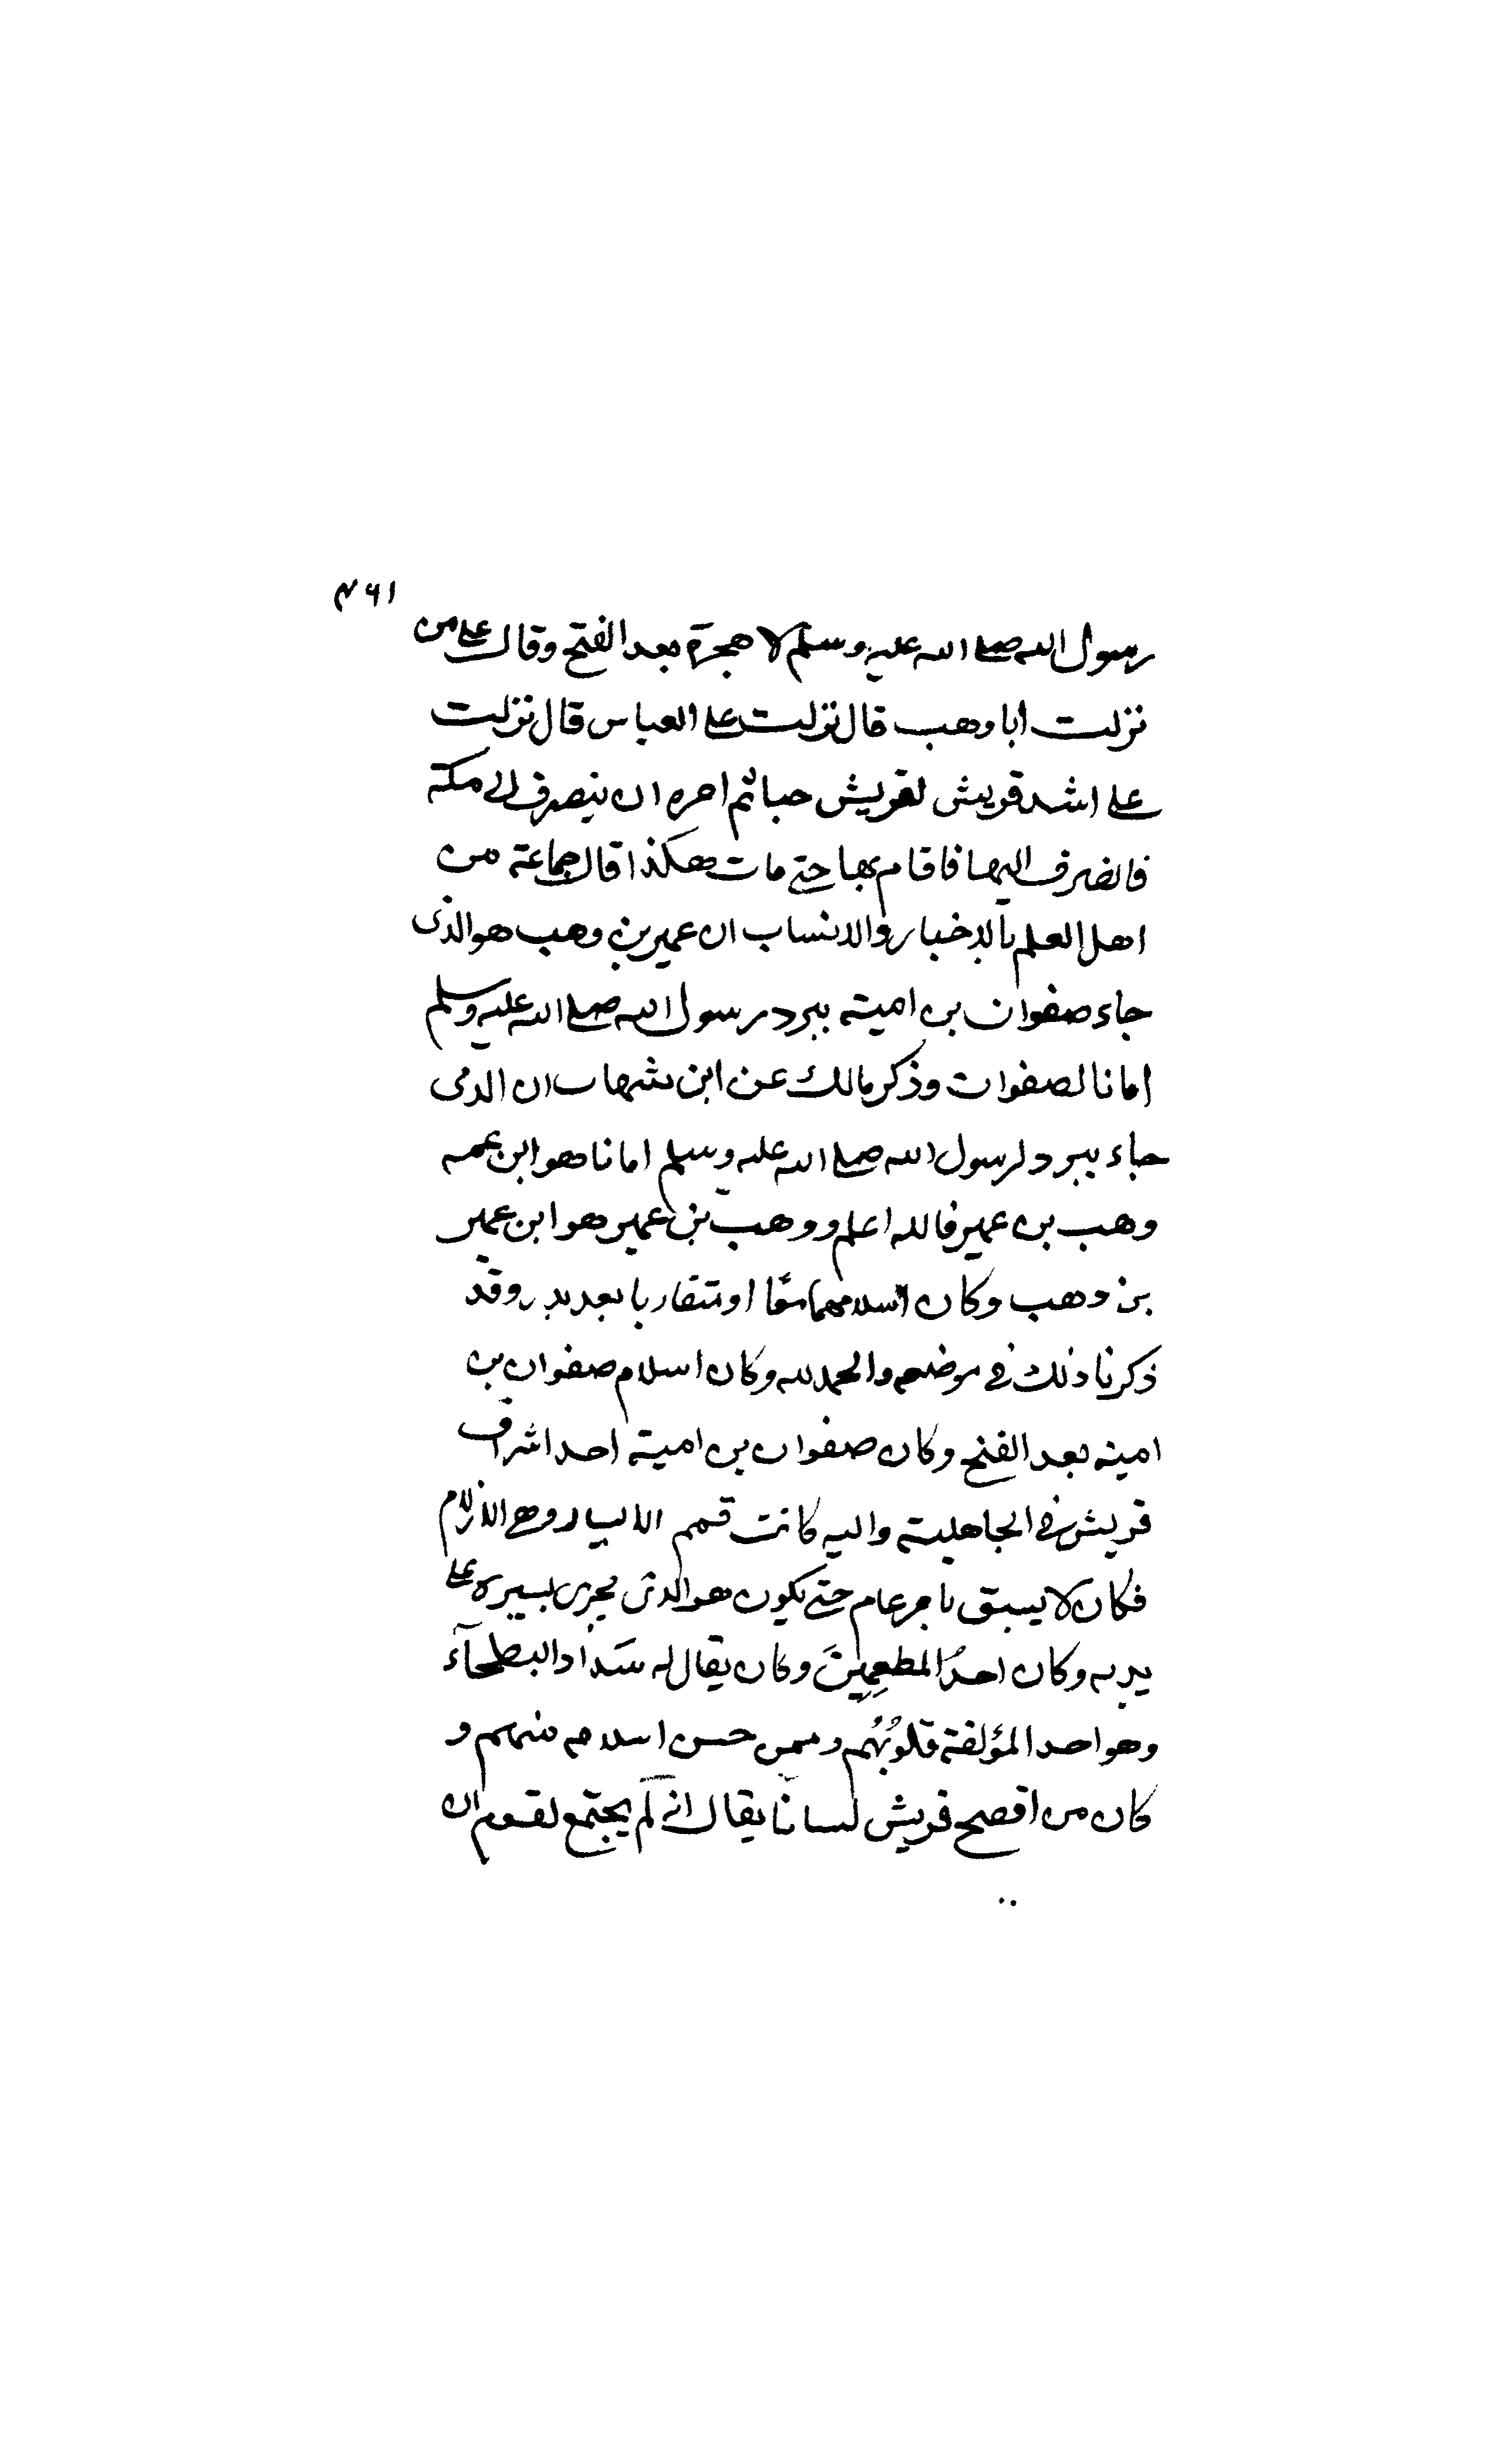 ۴۶۱
رسول الله صلى الله عليه وسلم لا هجرة بعد الفتح وقال على من
نزلت ابا وهب قال نزلت على العباس قال نزلت
على اشد قريش لقريش حبا ثم امره ان ينصرف الى مكة
فانصرف اليها فاقام بها حتى مات هكذا قال جماعة من
اهل العلم بالاخبار والانساب ان عمير بن وهب هو الذى
جاء صفوان بن امية ببرد رسول الله صلى الله عليه وسلم
امانا لصفوان وذكر مالك عن ابن شهاب ان الذى
جاء ببرد لرسول الله صلى الله عليه وسلم امانا هو ابن عمه
وهب بن عمير فالله اعلم ووهب بن عمير هو ابن عمير
بن وهب وكان اسلامهما معًا او متقاربا بعد بدر وقد
ذكرنا ذلك فى موضعه والحمد لله وكان اسلام صفوان بن
امية بعد الفتح وكان صفوان بن امية احد اشراف
قريش فى الجاهلية واليه كانت قسم الايسار وهى الازلام
فكان لا يسبق بامر عام حتى يكون هو الذى يجرى يسيره على
يديه وكان احدُ المطعِمِينَ وكان يقال له سَدَاد البطحآء
وهو احد المؤلفة قلوبُهُم وممن حسن اسلامه منهم و
كان من افصح قريش لسانًا يقال انه لم يجتمع لقوم ان